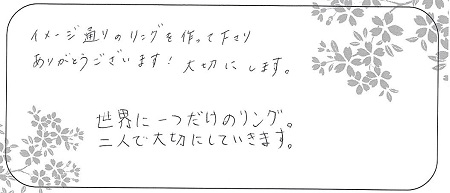 イメージ通りのリングを作って下さり
ありがとうございます！大切にします。
世界に一つだけのリング。
二人で大切にしていきます。